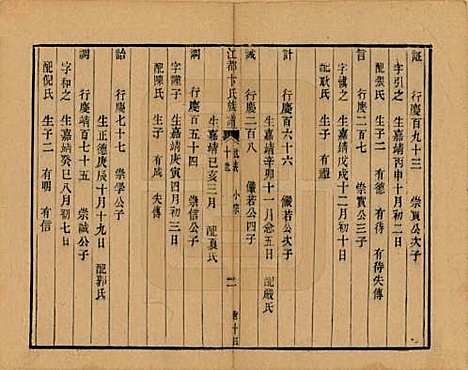 証 行慶百九十三 崇賓公次子
字引之 生嘉靖丙申十月初二日
配裴氏 生子二 有德 有待 有待失傳
言 行慶二百七 崇賓公三子
字慎之 生嘉靖戊戌十二月初十日
配耿氏 生子 有禮
計 行慶百六十六 儼若公次子
生嘉靖辛卯十一月念五日 配嚴氏
誠 行慶二百八 儼若公四子
生嘉靖己亥三月 配袁氏
江都卞氏族譜 世表 十世 小宗 二
調 行慶百五十四 崇信公子
字燮子 生嘉靖庚寅四月初三日
配陳氏 生子 有成 失傳
詥 行慶七十七 崇學公子
生正德庚辰十月十九日 配郭氏
調 行慶百七十五 崇誠公子
字和之 生嘉靖癸巳八月初三日
配倪氏 生子二 有明 有信